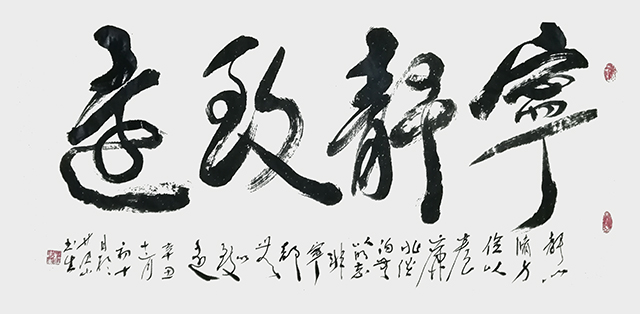 寧靜致遠
靜以
修身
儉以
養
德
非澹
泊無
以明志
非
寧
靜
無以
致
遠
辛丑
十二月
初十
日於